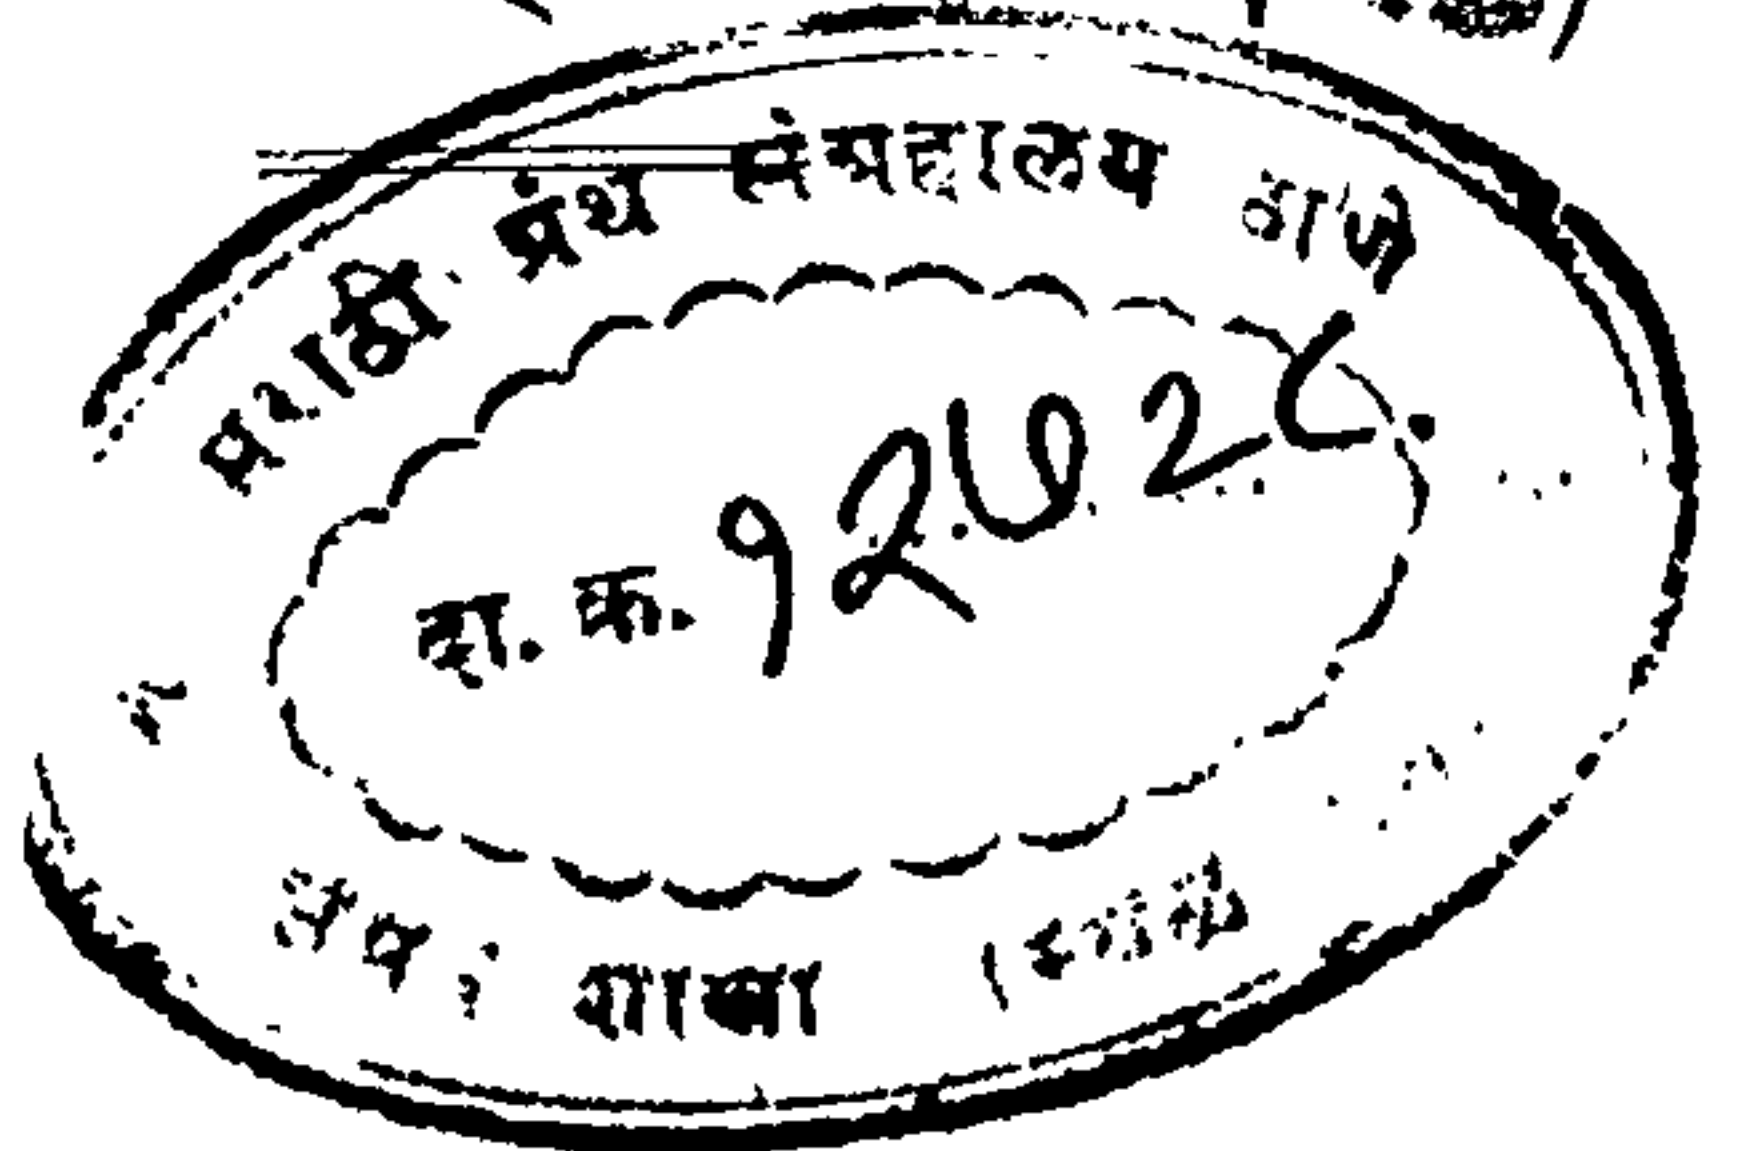 मराठी ग्रंथ संग्रहालय ठाणे
दा. क्र. १२७२८
शाखा